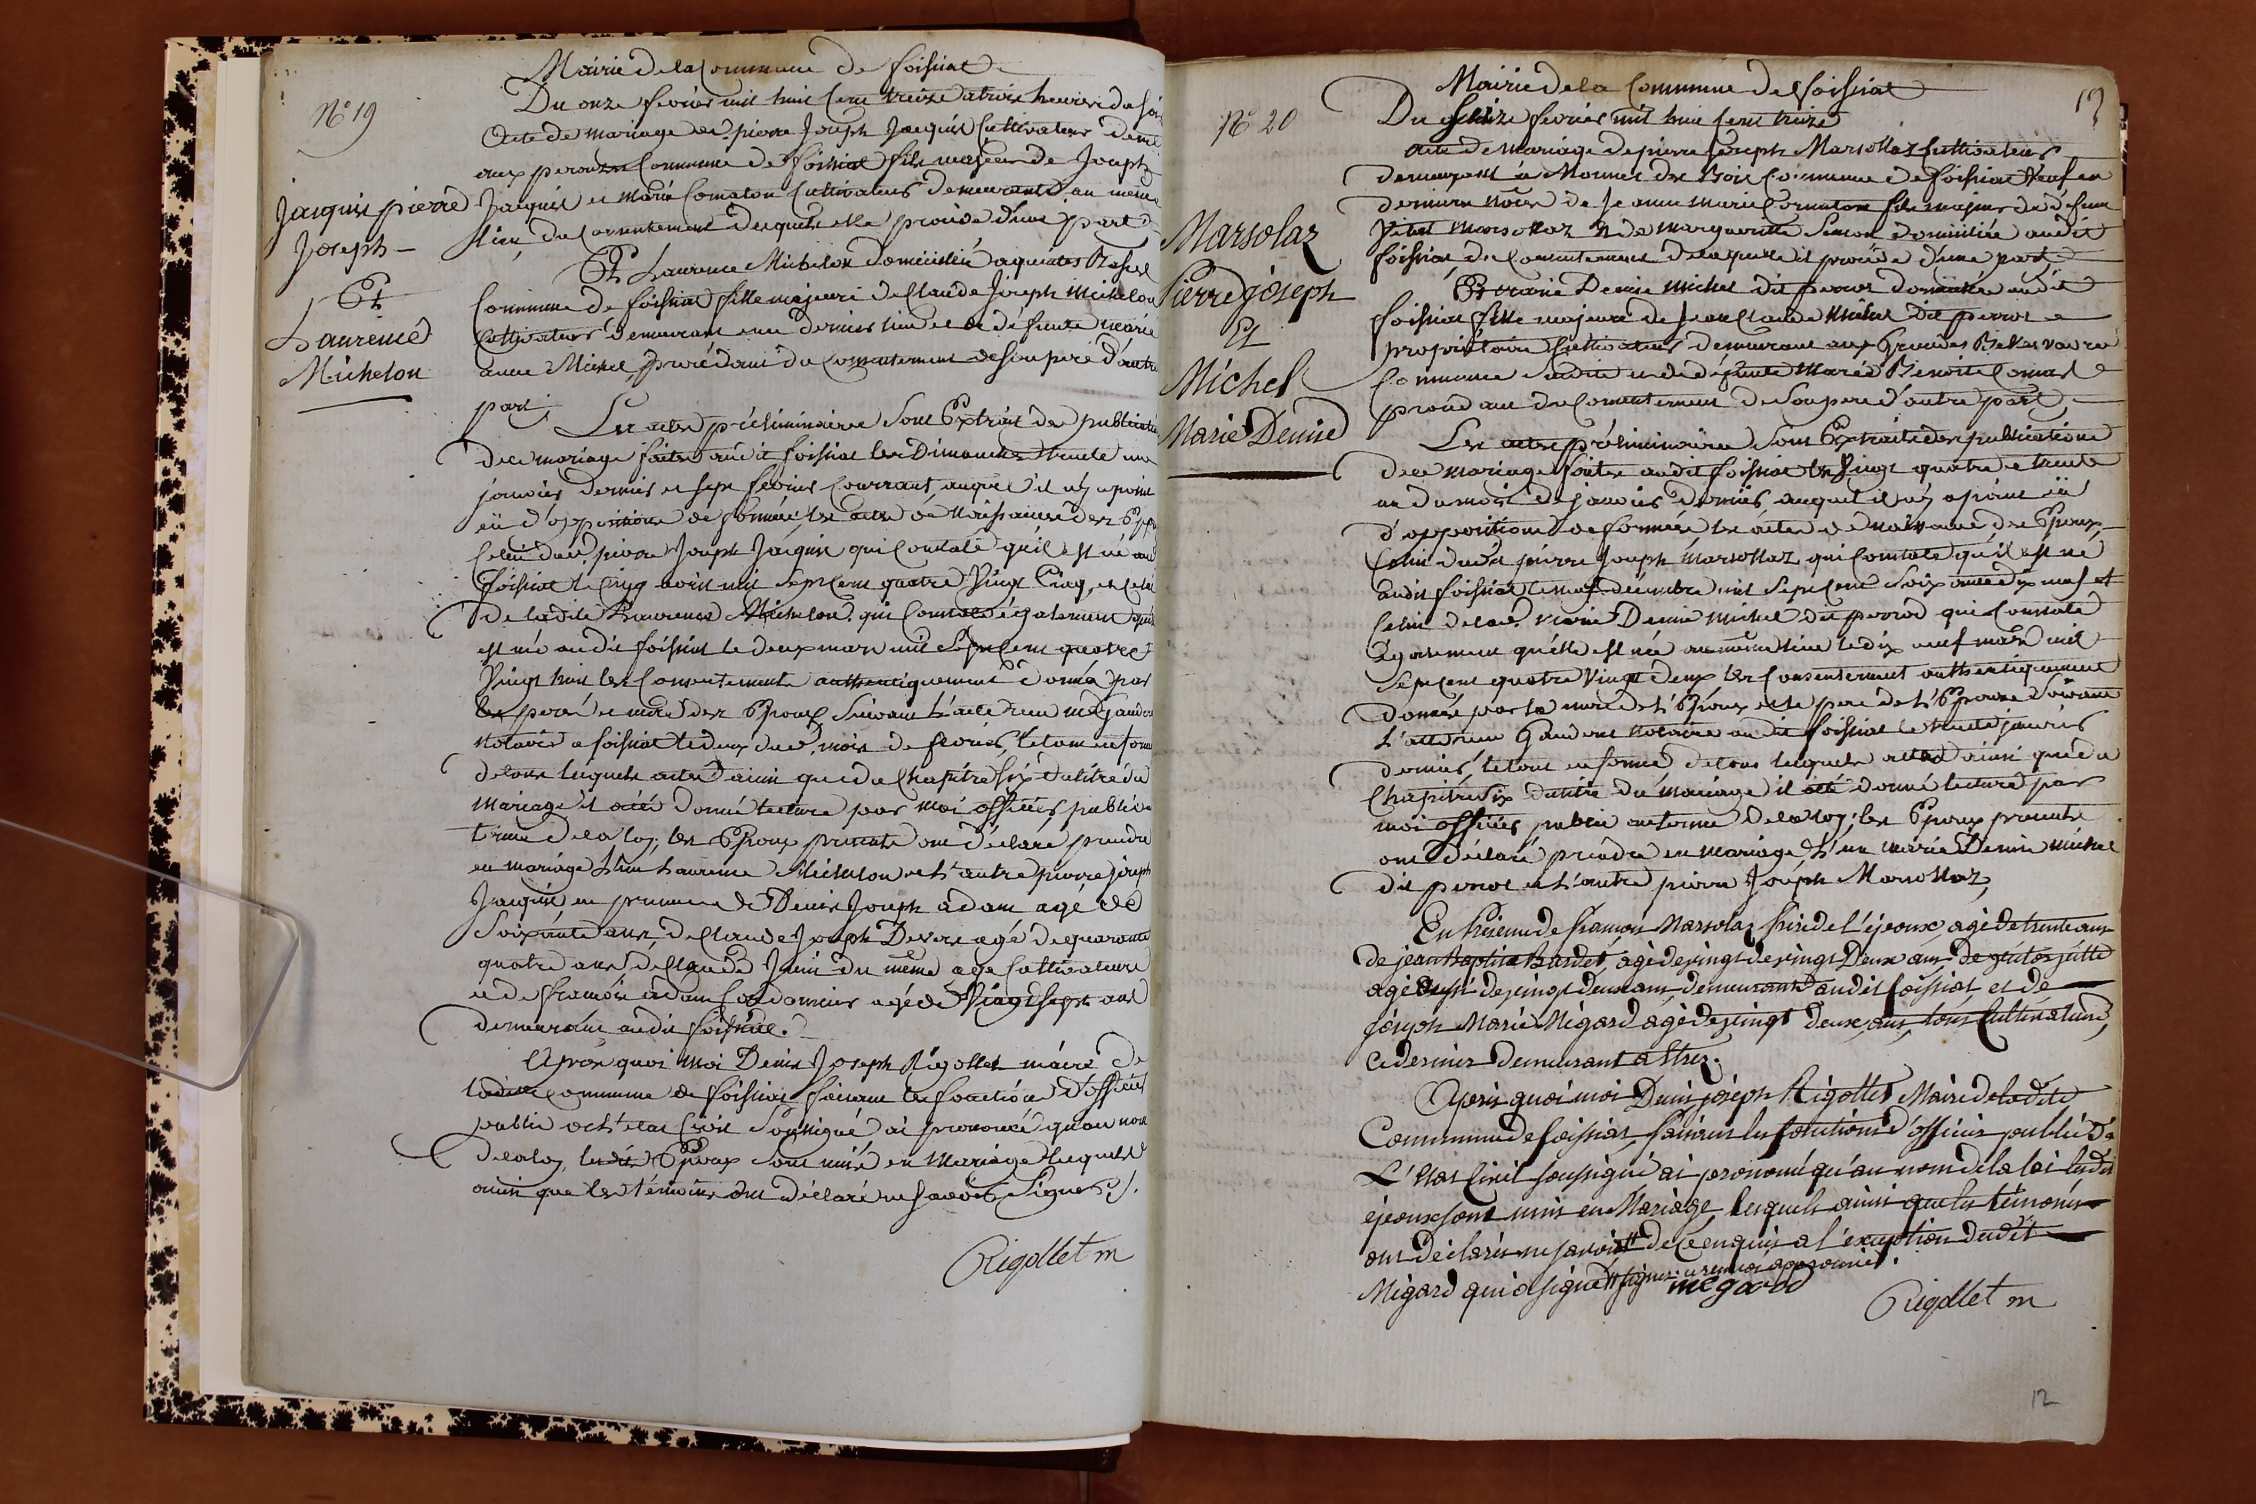 Mairie de la Commune de foissiat
N.º 19
Du onze fevrier mil huit Cent treize a trois heures du soir
Acte de mariage de pierre Joseph Jacquis Cultivateur
aux Commune de foissiat fils majeur de Joseph
Jacquis et marie Comaton Cultivateurs demeurants au même
lieu, du Consentement desquels elle procède d'une part
Jacquis pierre
Joseph
Et
Laurence
Michelon
Et Laurence Michelon domiciliée
Commune de foissiat fille majeure de Claude Joseph Michelon
Cultivateur demeurant en ce dernier lieu et de défunte marie
anne Michel, procédant du Consentement de son père d'autre
part.
Les actes préliminaires sont Extrait des publications
de ce mariage faites audit foissiat les Dimanches trente un
janvier dernier et sept fevrier Courrant, auquel il n'y a point
eü d'opposition de formée les actes de Naissance des Epoux
Celui dud. pierre Joseph Jacquis qui Constate qu'il est né audit
foissiat le Cinq avril mil sept cent quatre Vingt Cinq, et celui
de ladite Laurence Michelon qui Constate également qu'elle
est née audit foissiat le deux mars mil sept cent quatre
Vingt huit les Consentements authentiquement donné par
les père et mère des Epoux suivant l'acte reçu me gaudene
notaire a foissiat le deux dud. mois de fevrier, le tout en forme
de tous lesquels actes ainsi que du Chapitre Six du titre du
mariage il a été donné lecture par moi officier public
terme de la loy, les Epoux presents ont déclaré prendre
en mariage l'un Laurence Michelon et l'autre pierre joseph
Jacquis, en presence de Denis Joseph adam agé de
Soixante ans, de Claude Joseph Devere agé de quarante
quatre ans de Claude Janin du même age Cultivateurs
et de françois adam Cordonnier agé de Vingt sept ans
demeurant audit foissiat.
Après quoi moi Denis Joseph Rigollet maire de
ladite Commune de foissiat faisant les fonctions d'officier
public de l'etat Civil soussigné ai prononcé qu'au nom
de la loy, lesdits Epoux sont unis en Mariage lesquels
ainsi que les témoins ont déclaré ne savoir signer ./.
Rigollet m
Mairie de la Commune de foissiat
13
N.º 20
Du seize fevrier mil huit Cent treize
acte de mariage de pierre Joseph Marsollaz Cultivateur
demeurant à du Bois Commune de foissiat Veuf en
dernière nôces de Jeanne marie Comaton fils majeur de défunt
Marsollaz & de marguerite Simon domiciliée audit
foissiat du Consentement de laquelle il procède d'une part
Marsolaz
Pierre joseph
Et
Michel
Marie Denise
Et marie Denise michel dit perrod domiciliée audit
foissiat fille majeure de Jean Claude michel dit perrod
propriétaire Cultivateur demeurant aux Grandes
Commune susdite et de défunte Marie Benoite
procédant du Consentement de son père d'autre part,
Les actes préliminaires sont Extraits des publications
de ce mariage faites audit foissiat les Vingt quatre et trente
un du mois de janvier dernier, auquel il n'y a point eü
d'opposition de formée les actes de naissance des Epoux
Celui dudit pierre Joseph Marsollaz qui Constate qu'il est né
audit foissiat le neuf décembre mil sept cent soixante dix neuf et
Celui de lad. marie Denise michel dit perrod qui Constate
Egalement qu'elle est née au même lieu le dix neuf mars mil
sept cent quatre Vingt deux les Consentement authentiquement
donnée par la mère de l'Epoux et le père de l'Epouse suivant
L'acte reçu Gaudene Notaire audit foissiat le trente janvier
dernier, le tout en forme de tous lesquels actes ainsi que du
Chapitre Six du titre du mariage il a été donné lecture par
moi officier public au terme de la loy; les Epoux presents
ont déclaré prendre en mariage l'un marie Denise michel
dit perrod et l'autre pierre Joseph Marsollaz,
En présence de françois Marsolaz frère de l'époux, agé de trente ans
de jean Baptiste agé de vingt de vingt Deux ans de
agé aussi de vingt deux ans, demeurants audit foissiat et de
joseph Marie Mégard agé de vingt deux ans, tous Cultivateurs,
ce dernier demeurant à
Après quoi moi Denis joseph Rigollet Maire de ladite
Commune de foissiat, faisant les fonctions d'officier public de
L'Etat Civil soussigné ai prononcé qu'au nom de la loi lesdits
époux sont unis en Mariage, lesquels ainsi que les témoins
ont déclaré ne savoir # de ce enquis a l'exception dudit
Mégard qui a signé # signer. le renvoi approuvé.
megard
Rigollet m
12